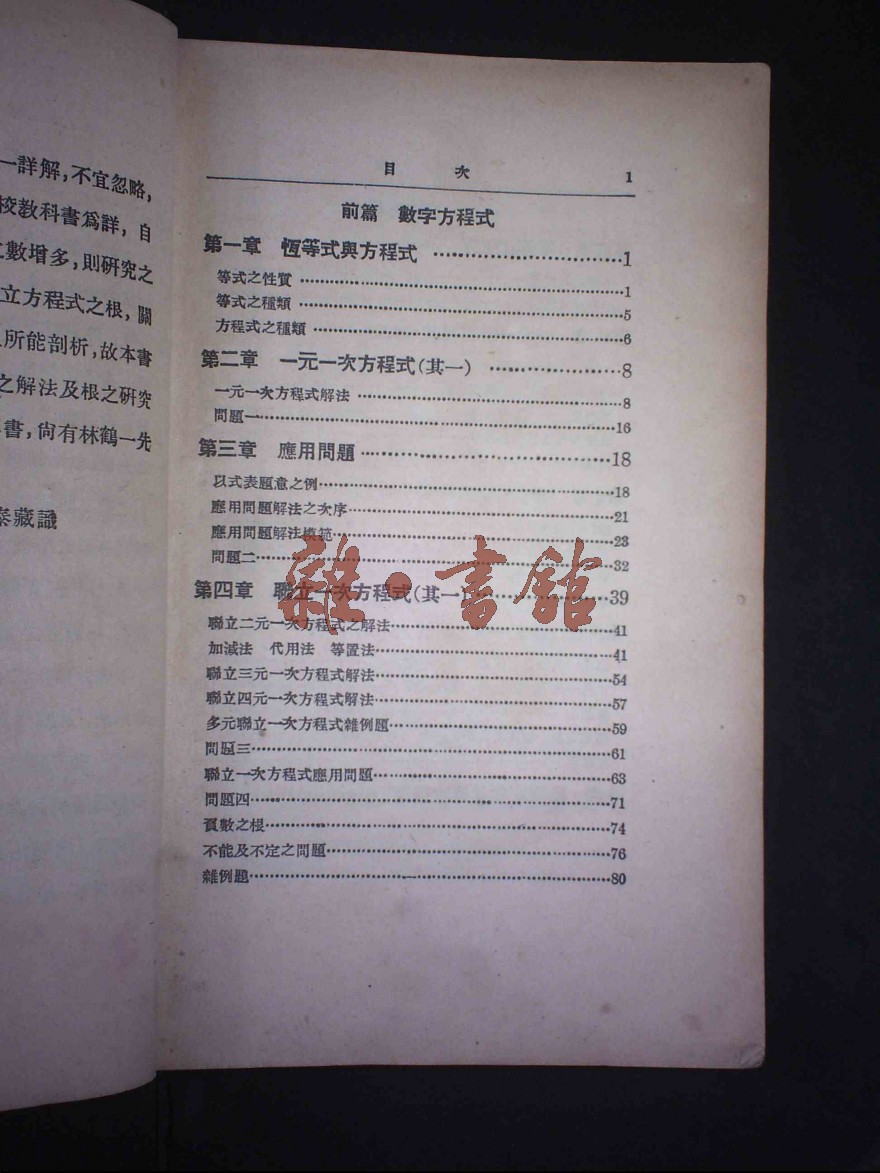 一詳解,不宜忽略,
校教科書爲詳,自
數增多,則研究之
立方程式之根,關
所能剖析,故本書
之解法及根之研究
書,尙有林鶴一先
藏識
目 次 1
前篇 數字方程式
第一章 恆等式與方程式 …………………………1
等式之性質 …………………………1
等式之種類 …………………………5
方程式之種類 …………………………6
第二章 一元一次方程式(其一) …………………………8
一元一次方程式解法 …………………………8
問題一…………………………16
第三章 應用問題…………………………18
以式表題意之例…………………………18
應用問題解法之次序…………………………21
應用問題解法模範…………………………23
問題二…………………………32
雜·書館
第四章 聯立一次方程式(其一)…………………………39
聯立二元一次方程式之解法…………………………41
加減法 代用法 等置法…………………………41
聯立三元一次方程式解法…………………………54
聯立四元一次方程式解法…………………………57
多元聯立一次方程式雜例題…………………………59
問題三…………………………61
聯立一次方程式應用問題…………………………63
問題四…………………………71
負數之根…………………………74
不能及不定之問題…………………………76
雜例題…………………………80